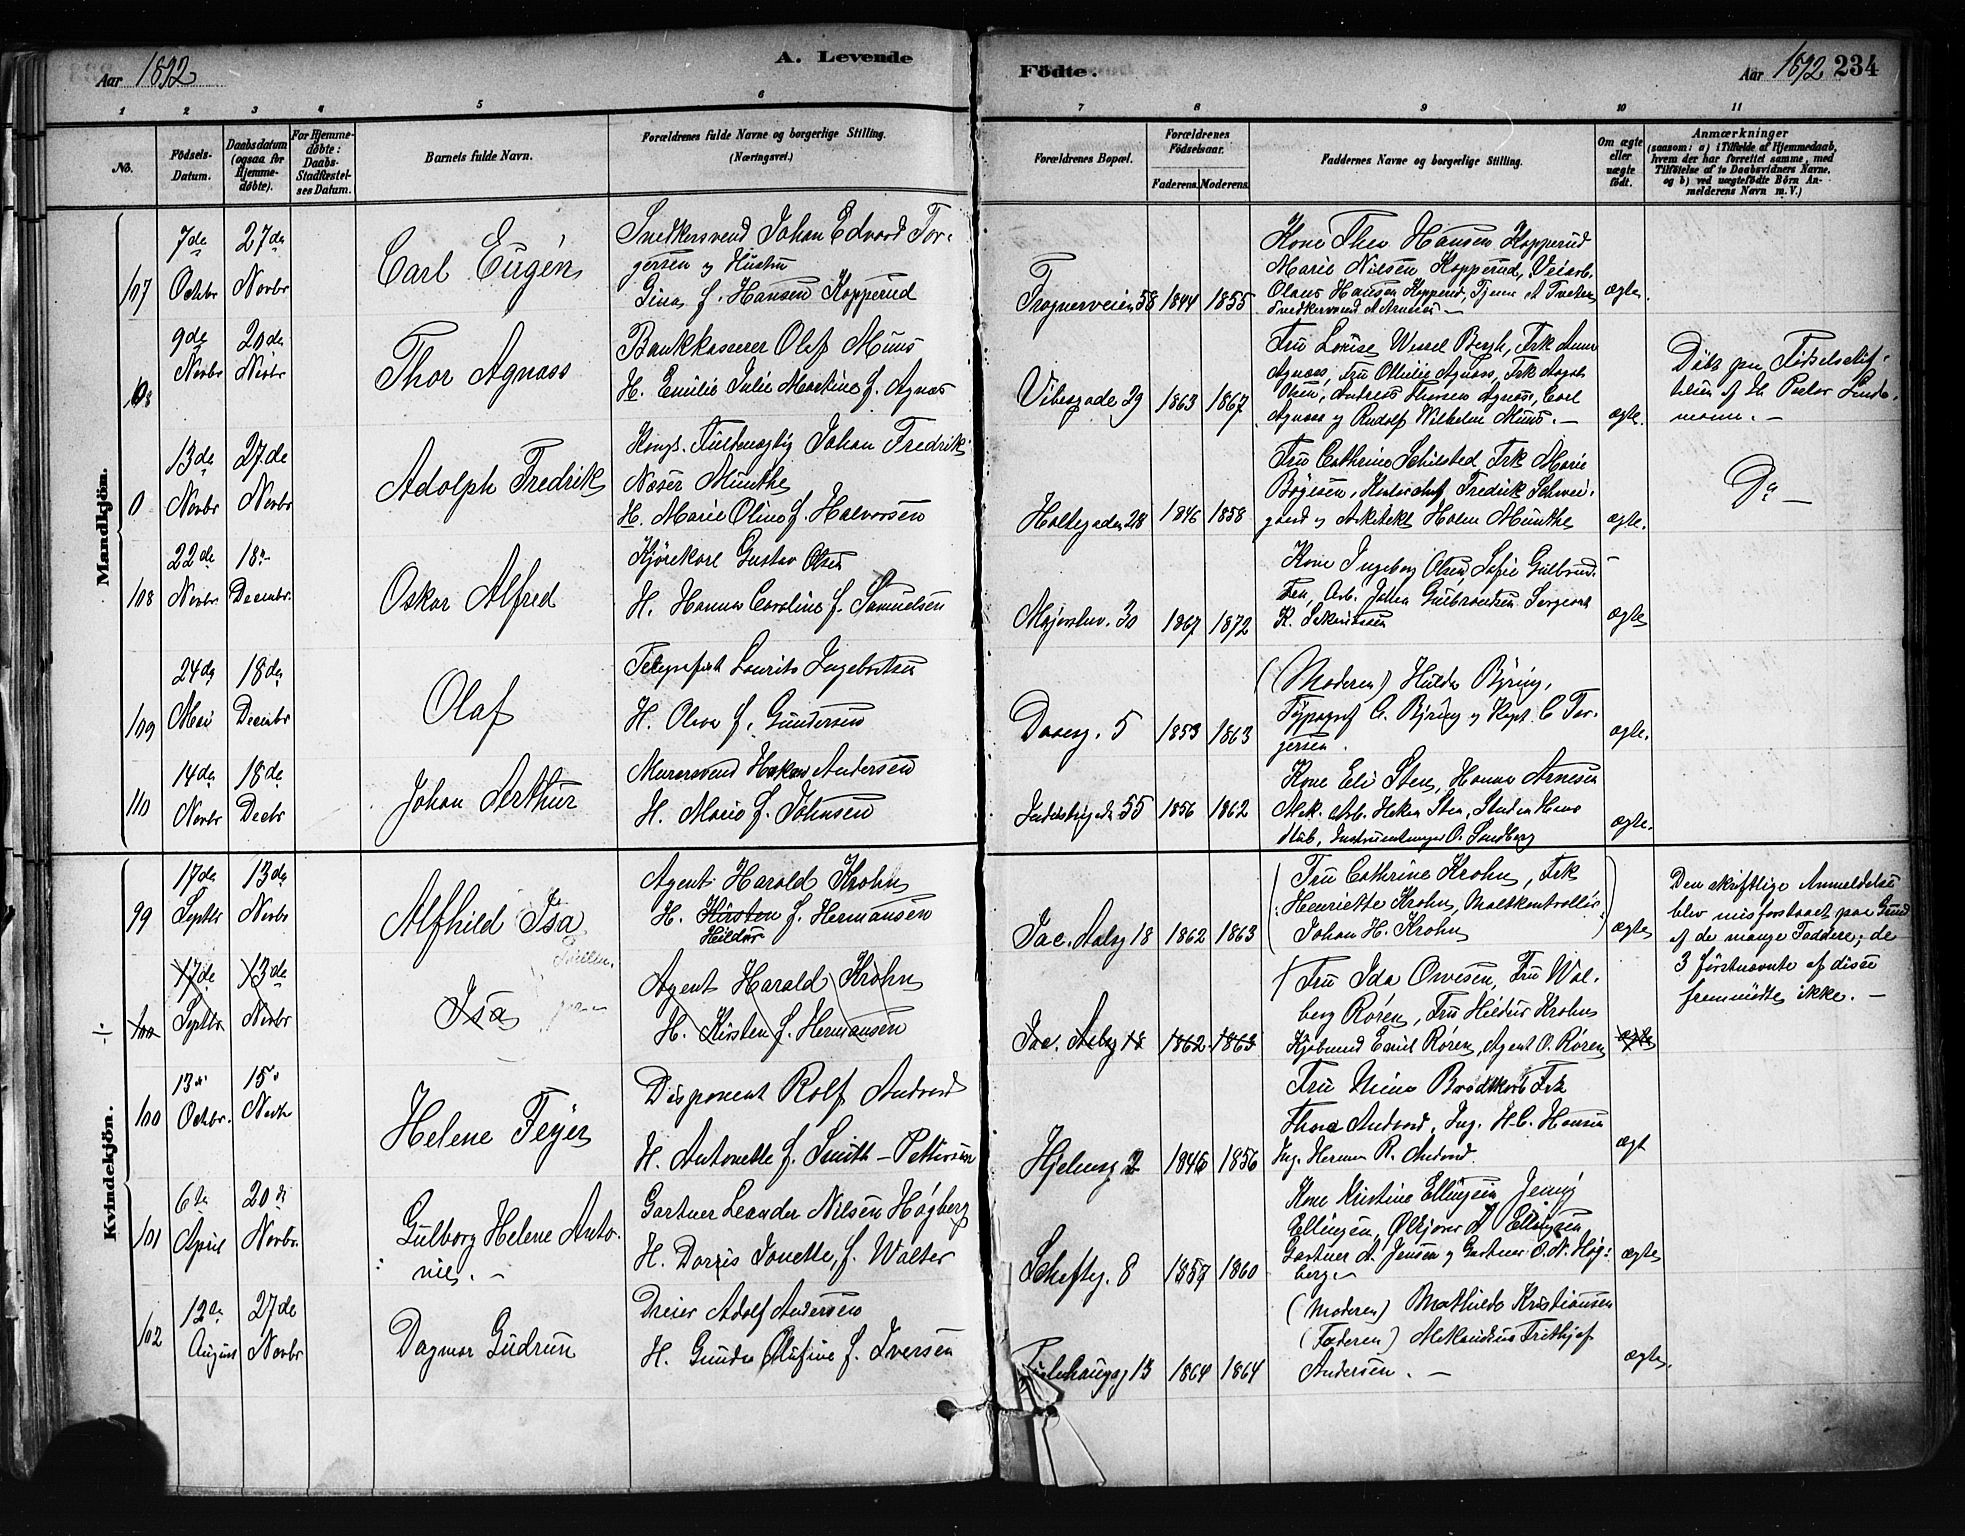 Aar 1892
A. Levende
Födte.
Aar 1892 234
1 2 3 4 5 6 7 8 9 10 11
No.
Födsels-
Datum.
Daabsdatum
(ogsaa for
Hjemme-
döbte).
For Hjemme-
döbte:
Daabs-
Stadfæstel-
ses Datum.
Barnets fulde Navn.
Forældrenes fulde Navne og borgerlige Stilling.
(Næringsvei.)
Forældrenes Bopæl.
Forældrenes
Födselsaar.
Faderens. Moderens.
Faddernes Navne og borgerlige Stilling.
Om ægte
eller
uægte
födt.
Anmærkninger
(saasom: a) i Tilfælde af Hjemmedaab,
hvem der har forrettet samme, med
Tilföielse af to Daabsvidners Navne,
og b) ved uægtefödte Börn An-
melderens Navn m. V.)
Mandkjön.
107
7de
Octbr
27de
Novbr
Carl Eugén
Snedkersvend Johan Edvard Tor-
gersen og Hustru
Gina f. Hansen Kopperud
Frognerveien 58
1844 1855
Kone Thea Hansen Kopperud
Marie Nilsen Kopperud, Veiarb.
Olaus Hansen Kopperud, Tjener A Tveten
Snedkersvend
ægte.
108
9de
Novbr
20de
Novbr
Thor Agnass
Bankkasserer Olaf Muus
H. Emilie Julie Martine f. Agnas
Vibesgade 29
1863 1867
Fru Louise Wessel Bergh, Frk Anna
Agnass, Fru Ottilie Agnass, Frk Aagot
Thue, Andreas Thorsen Agnass, Carl
Agnass og Rudolf Wilhelm Muus. —
ægte.
Döbt paa Födselsstif-
telsen af Hr Pastor Linde-
mann. —
0
13de
Novbr
27de
Novbr
Adolph Fredrik
Kongl. Fuldmægtig Johan Fredrik
Naser Munthe
H. Marie Oline f. Halvorsen
Holtegaden 28
1846 1858
Fru Cathrine Schilsted Frk Marie
Bøgesen, Kontorchef Fredrik Schwei-
gaard og Arkitekt Holm Munthe
ægte.
Do —
108
22de
Novbr
18de
Decembr.
Oskar Alfred
Kjørekarl Gustav Olsen
H. Hanna Caroline f. Samuelsen
Majorstuv. 30
1867 1872
Kone Ingeborg Olsen, Sofie Gulbrand-
sen, Arb. Johan Gulbrandsen Sergeant
K.
ægte
109
24de
Mai
18de
Decembr
Olaf
Telegrafist Laurits Ingebretsen
H. Olava f. Gundersen
Daaesg. 5
1853 1863
(Moderen) Hulda Bjring,
Typograf C. Bjring og Kapt. C Tor-
gersen.
ægte.
110
14de
Novbr
18de
Decbr
Johan Arthur
Murersvend Hakon Andersen
H. Marie f. Johnsen
Industrigaden 55
1856 1862
Kone Eli Sten, Hanna Arnesen
Mek. Arb. Hakon Sten, Student Hans
Stub, Instrumentmager O. Sundberg
ægte.
Kvindekjön.
99
17de
Septbr
13de
Novbr
Alfhild Isa
Agent Harald Krohn
H. Kirsten f. Hermansen
Hildur
Jac. Aalsg 18
1862 1863
Fru Cathrine Krohn, Frk
Henriette Krohn, Maltkontrollör
Johan H. Krohn
ægte
Den skriftlige Anmeldelse
blev misforstaaet paa Grund
af de mange Faddere; de
3 förstnævnte af disse
fremmödte ikke. —
÷ 100
17de
Septbr
13de
Novbr
Isa
Agent Harald Krohn
H. Kirsten f. Hermansen
Jac. Aalsg 18
1862 1863
Fru Ida Orvesen, Fru Wal-
berg Røren, Fru Hildur Krohn
Kjøbmand Emil Røren, Agent O. Røren
ægte
100
13de
Octbr.
15de
Novbr
Helene Fejer
Disponent Rolf Andvord
H. Antonette f. Smith-Pettersen
Hjelmsg 2
1846 1856
Fru Nina Brodtkorb Frk
Thora Andvord, Ing. H. C. Hansen
Ing. Herman R. Andvord.
ægt
101
6te
April
20de
Novbr.
Gulborg Helene Anto-
nie. —
Gartner Leander Nilsen Høgberg
H. Dorris Jonette, f. Walter
Scheftg. 8
1857 1860
Kone Kristine Ellingsen Jenny
Ellingsen, Ølkjører A Ellingsen
Gartner A. Jensen og Gartner O. N. Høg-
berg. —
ægte
102
12de
August
27de
Novbr
Dagmar Gudrun
Dreier Adolf Andersen
H. Gunda Olufine f. Iversen
Pilehaugsg 13
1864 1864
(Moderen) Mathilde Kristiansen
(Faderen) Aleksandrus Frithjof
Andersen. —
ægte.